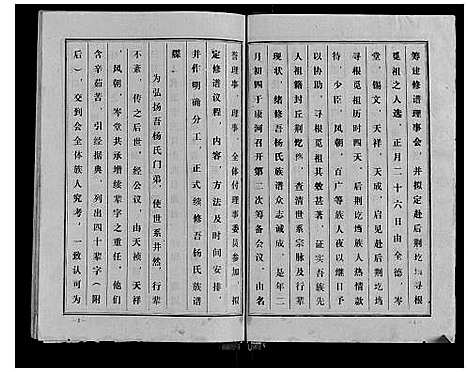 筹建修谱理事会，并拟定赴后荆圪垱寻根
觅祖之人选，正月二十六日由全德，岑
堂，锡文，天祥，天成，启晨赴后荆圪垱
寻根觅祖历时四天，后荆圪垱族人热情款
待，少臣，风朝，百广等族人夜以继日予
以协助，寻根觅祖其效甚著，证实吾族先
人祖籍封丘荆圪垱，查清世系宗脉及行辈
现状，绪修吾杨氏族谱众志诚成，是年二
月初四于康河召开第二次筹备会议，由名
誉理事，理事，全体付理事委员参加，拟
定修谱议程，内容，方法及时间安排，
并作明确分工，正式续修吾杨氏族谱
牒。
为弘扬吾杨氏门弟，使世系井然，行辈
不紊，传之后世，经公议，由天祯，天祥
，风朝，岑堂共承增续辈字之重任，他们
含辛茹苦，引经据典，列出四十辈字（附
后），交到会全体族人究考，一致认可为